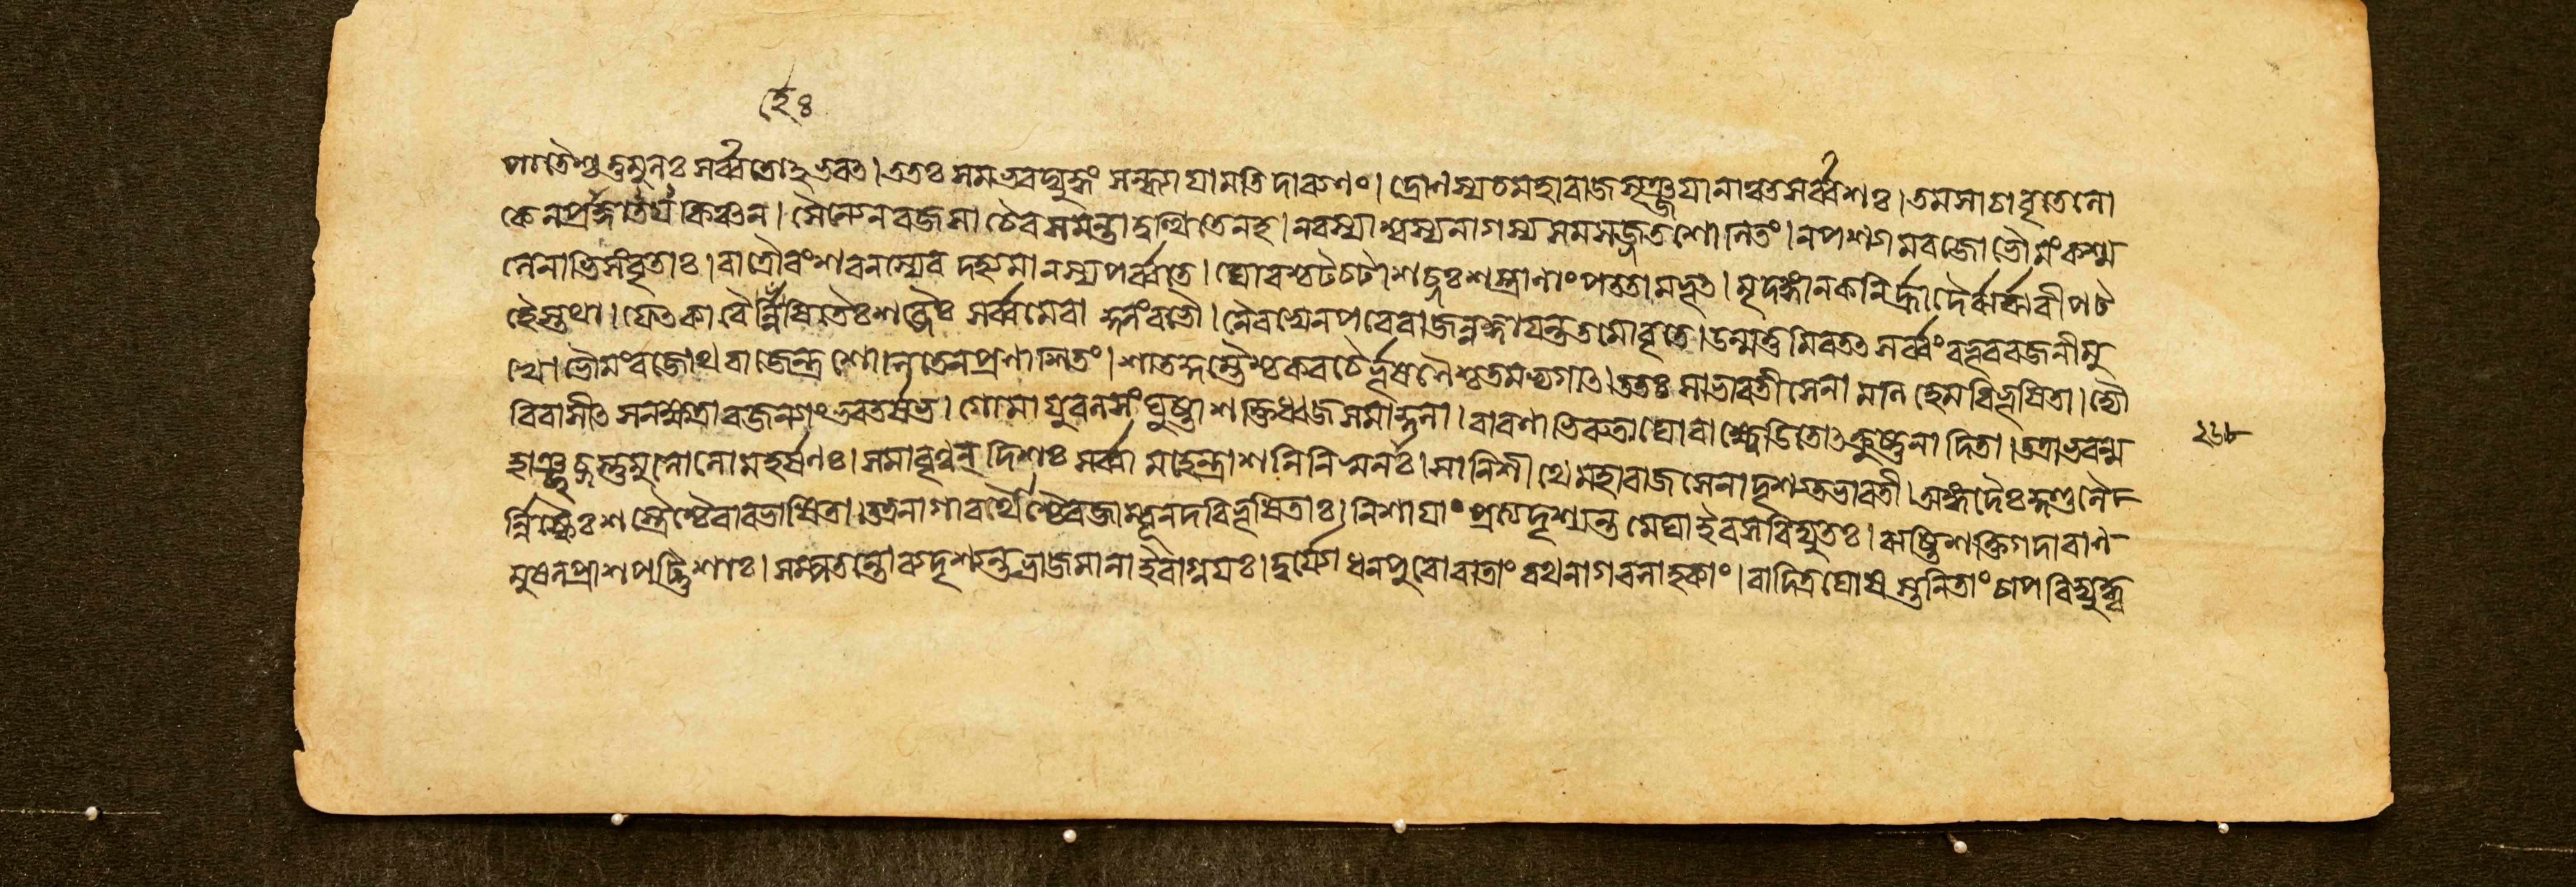 হৈঃ
পাতৈশ্চ তুমুলঃ সর্ব্বতোঽভবৎ। ততঃ সমভবদ্যুদ্ধং সন্ধ্যায়ামতিদারুণং। দ্রোণস্য চ মহারাজ সৃঞ্জয়ানাঞ্চ সর্ব্বশঃ। তমসা চাবৃতে লো
কে ন প্রাজ্ঞায়ত কিঞ্চন। সৈন্যেন রজসা চৈব সমন্তাদুত্থিতেন হ। নরস্যাশ্বস্য নাগস্য সমসজ্জত শোণিতং। নাপশ্যাম রজো ভৌমং কশ্ম
লেনাভিসংবৃতাঃ। রাত্রৌ বংশবনস্যেব দহ্যমানস্য পর্ব্বতে। ঘোরশ্চটচটাশব্দঃ শস্ত্রাণাং পততামভূৎ। মৃদঙ্গানকনির্হ্রাদৈর্ঝর্ঝরীপট
হৈস্তথা। ফেৎকারৈর্হ্রেষিতৈঃ শব্দৈঃ সর্ব্বমেবাকুলং বভৌ। নৈব স্বে ন পরে রাজন্ প্রজ্ঞায়ন্ত তমোবৃতে। উন্মত্তমিব তৎ সর্ব্বং বভূব রজনীমু
খে। ভৌমং রজোথ রাজেন্দ্র শোণিতেন প্রণাশিতং। শাতকুম্ভৈশ্চ কবচৈর্ভূষণৈশ্চ তমভ্যগাৎ। ততঃ সা ভারতী সেনা মণিহেমবিভূষিতা। দ্যৌ
রিবাসীৎ সনক্ষত্রা রজন্যাং ভরতর্ষভ। গোমায়ুবলসংঘুষ্টা শক্তিধ্বজসমাকুলা। বারণাভিরুতা ঘোরা ক্ষ্বেডিতোৎক্রুষ্টনাদিতা। তত্রাভবন্ম
হাশব্দস্তুমুলো লোমহর্ষণঃ। সমাবৃণ্বন্ দিশঃ সর্ব্বা মহেন্দ্রাশনিনিস্বনঃ। সা নিশীথে মহারাজ সেনাদৃশ্যত ভারতী। অঙ্গদৈঃ কুণ্ডলৈ
র্নিষ্কৈঃ শস্ত্রৈশ্চৈবাবভাসিতা। তত্র নাগা রথাশ্চৈব জাম্বূনদবিভূষিতাঃ। নিশায়াং প্রত্যদৃশ্যন্ত মেঘা ইব সবিদ্যুতঃ। ঋষ্টিশক্তিগদাবাণ
মুষলপ্রাসপট্টিশাঃ। সম্পতন্তো ব্যদৃশ্যন্ত ভ্রাজমানা ইবাগ্নয়ঃ। দুর্যোধনপুরোবাতাং রথনাগবলাহকাং। বাদিত্রঘোষস্তনিতাং চাপবিদ্যুদ্ধ্ব
২৬৮